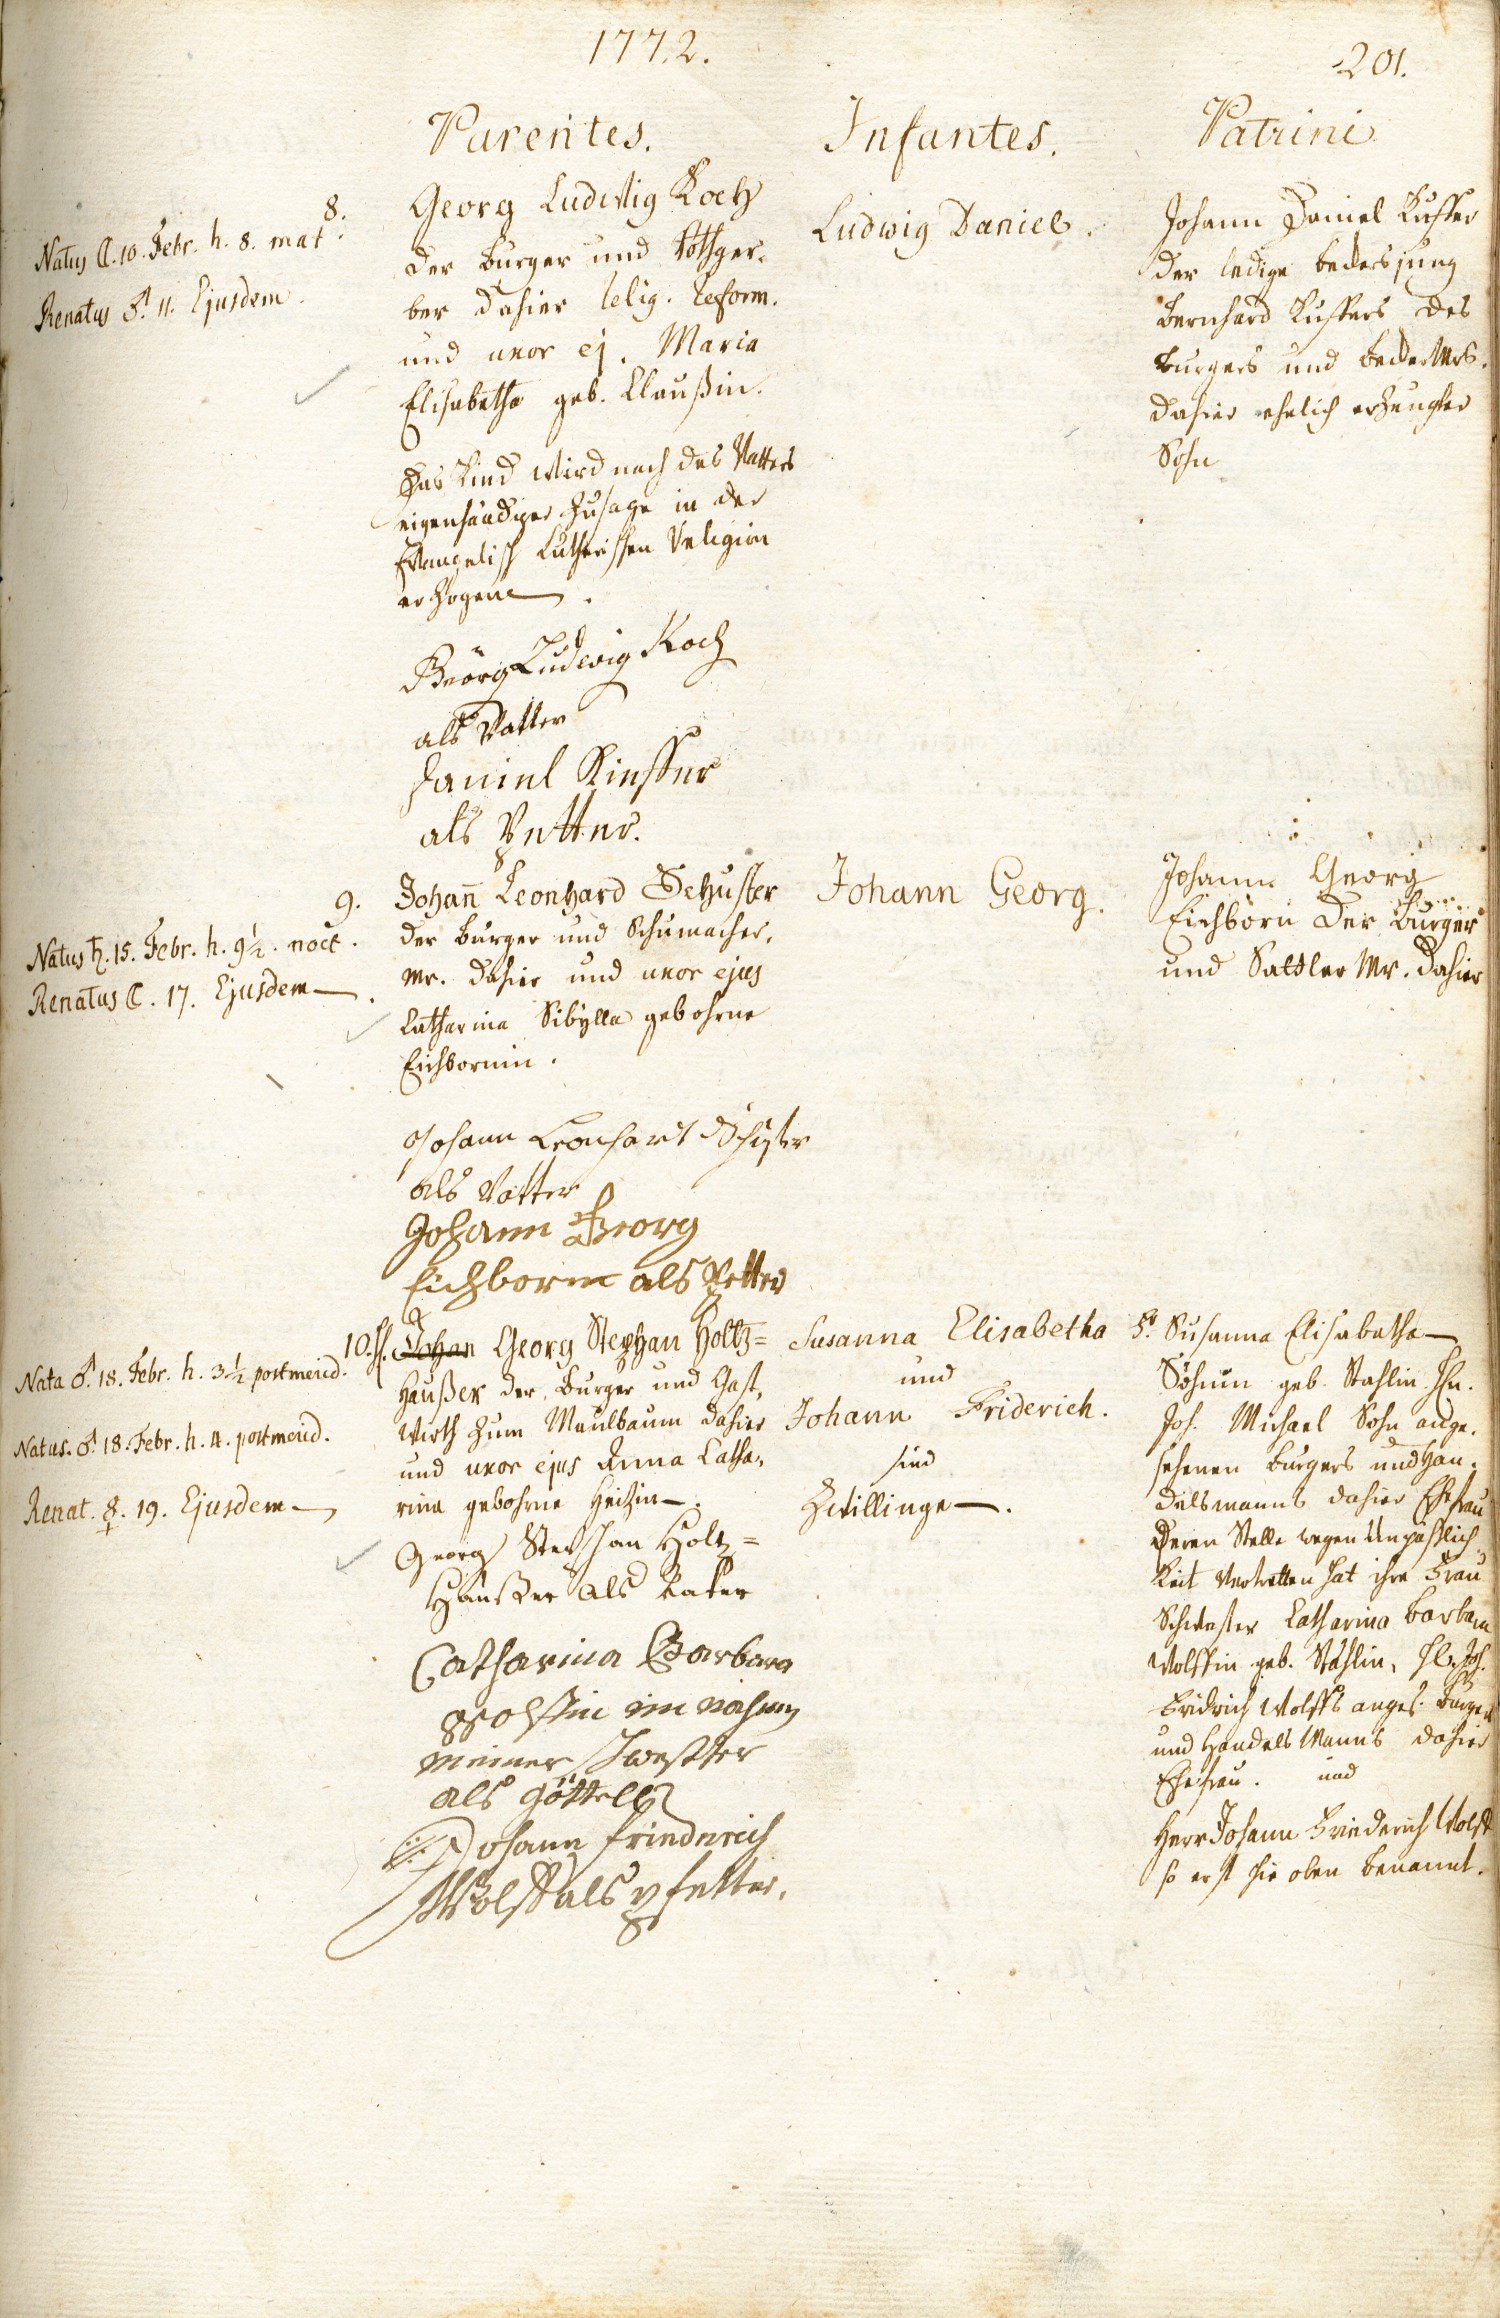 1772.
201.
Parentes.
Infantes.
Patrini
8.
Natus ☾. 10. Febr. h. 8. mat.
Renatus ♂. 11. Ejusdem.
Georg Ludwig Koch
der burger und Rothger-
ber dahier relig. reform.
und uxor ej. Maria
Elisabetha geb. Claußin.
Das Kind wird nach des Vatters
eigenhändiger Zusage in der
Evangelisch Lutherischen Religion
erzogen.
Georg Ludwig Koch
als Vatter
Daniel Kieffer
als Petter.
Ludwig Daniel.
Johann Daniel
der ledige beckersjung
Bernhard des
burgers und becker Mrs.
dahier ehelich erzeugter
Sohn
9.
Natus ♄. 15. Febr. h. 9½. noct.
Renatus ☾. 17. Ejusdem.
Johan̄ Leonhard Schuster
der burger und Schumacher,
Mr. dahier und uxor ejus
Catharina Sibylla gebohrne
Eichbornin.
Johann Leonhart Schuster
als Vatter
Johann Georg
Eichborn als Petter
Johann Georg.
Johann Georg
Eichborn der burger
und Sattler Mr. dahier
10.11.
Nata ♂. 18. Febr. h. 3½ postmerid.
Natus. ♂. 18. Febr. h. 4. postmerid.
Renat. ☿. 19. Ejusdem
Johan Georg Stephan Holtz=
Haußer der burger und Gast,
wirth zum Maulbaum dahier
und uxor ejus Anna Catha,
rina gebohrne Heitzin.
Georg Stephan Holtz=
Haußer als Vater
Catharina Barbara
Wolffin im nahmen
meiner Schwester
als göttell
Johann Friederich
Wolff als pfetter.
Susanna Elisabetha
und
Johann Friderich.
sind
Zwillinge.
Fr. Susanna Elisabetha
Söhnin geb. Stahlin Hn.
Joh. Michael Sohn ange,
sehenen burgers und Han,
delsmanns dahier Ehefrau
deren Stelle wegen Unpäßlich
keit vertretten hat ihre Frau
Schwester Catharina Barbara
Wolffin geb. Stahlin, Joh.
Fridrich Wolffs anges. burgers
und Handels Manns dahier
Ehefrau. und
Herr Johann Friederich Wolff
so erst hie oben benannt.